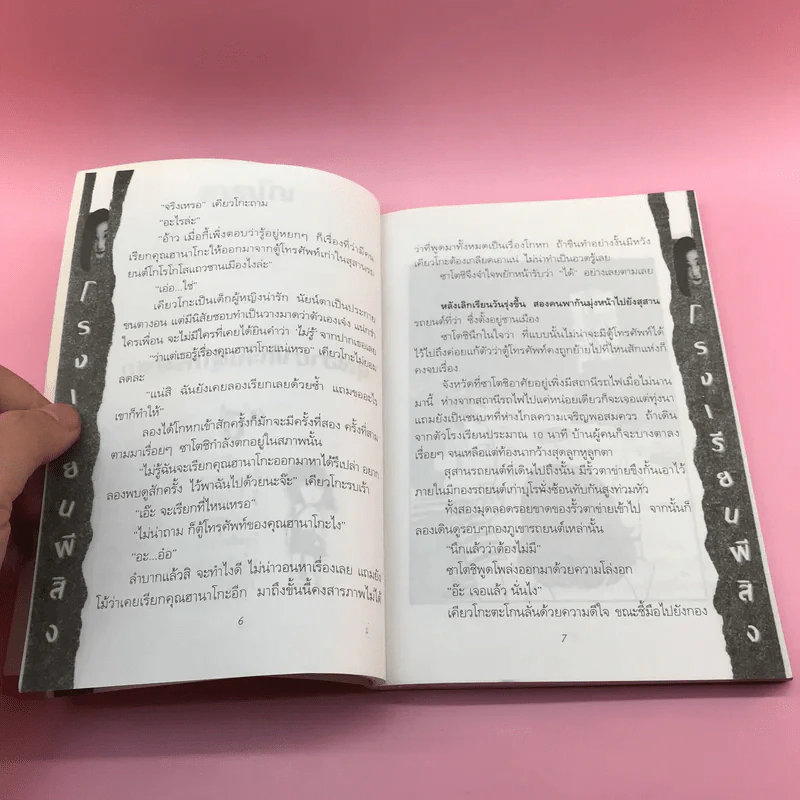 "จริงเหรอ" เคียวโกะถาม
"อะไรล่ะ"
"อ้าว เมื่อกี้เพิ่งตอบว่ารู้อยู่หยกๆ ก็เรื่องที่ว่ามีคน
เรียกคุณฮานาโกะให้ออกมาจากตู้โทรศัพท์เก่าในสุสานรถ
ยนต์โกโรโกโสแถวชานเมืองไงล่ะ"
"เอ่อ...ใช่"
เคียวโกะเป็นเด็กผู้หญิงน่ารัก นัยน์ตาเป็นประกาย
ขนตางอน แต่มีนิสัยชอบทำเป็นวางมาดว่าตัวเองเจ๋ง แน่กว่า
ใครเพื่อน จะไม่มีใครที่เคยได้ยินคำว่า 'ไม่รู้' จากปากเธอเลย
"ว่าแต่เธอรู้เรื่องคุณฮานาโกะแน่เหรอ" เคียวโกะไม่ยอม
ลดละ
"แน่สิ ฉันยังเคยลองเรียกเลยด้วยซ้ำ แถมขออะไร
เขาก็ทำให้"
ลองได้โกหกเข้าสักครั้งก็มักจะมีครั้งที่สอง ครั้งที่สาม
ตามมาเรื่อยๆ ซาโตชิกำลังตกอยู่ในสภาพนั้น
"ไม่รู้ฉันจะเรียกคุณฮานาโกะออกมาหาได้รึเปล่า อยาก
ลองพบดูสักครั้ง ไว้พาฉันไปด้วยนะจ๊ะ" เคียวโกะรบเร้า
"เอ๊ะ จะเรียกที่ไหนเหรอ"
"ไม่น่าถาม ก็ตู้โทรศัพท์ของคุณฮานาโกะไง"
"อะ...อ๋อ"
ลำบากแล้วสิ จะทำไงดี ไม่น่าวอนหาเรื่องเลย แถมยัง
โม้ว่าเคยเรียกคุณฮานาโกะอีก มาถึงขั้นนี้คงสารภาพไม่ได้
6
โรงเรียนผีสิง
ว่าที่พูดมาทั้งหมดเป็นเรื่องโกหก ถ้าขืนทำอย่างงั้นมีหวัง
เคียวโกะต้องเกลียดเอาแน่ ไม่น่าทำเป็นอวดรู้เลย
ซาโตชิจึงจำใจพยักหน้ารับว่า "ได้" อย่างเลยตามเลย
หลังเลิกเรียนวันรุ่งขึ้น สองคนพากันมุ่งหน้าไปยังสุสาน
รถยนต์ที่ว่า ซึ่งตั้งอยู่ชานเมือง
ซาโตชินึกในใจว่า ที่แบบนั้นไม่น่าจะมีตู้โทรศัพท์ได้
ไว้ไปถึงค่อยแก้ตัวว่าตู้โทรศัพท์คงถูกย้ายไปที่ไหนสักแห่งก็
คงจบเรื่อง
จังหวัดที่ซาโตชิอาศัยอยู่เพิ่งมีสถานีรถไฟเมื่อไม่นาน
มานี้ ห่างจากสถานีรถไฟไปแค่หน่อยเดียวก็จะเจอแต่ทุ่งนา
แถมยังเป็นชนบทที่ห่างไกลความเจริญพอสมควร ถ้าเดิน
จากตัวโรงเรียนประมาณ 10 นาที บ้านผู้คนก็จะบางตาลง
เรื่อยๆ จนเหลือแต่ท้องนากว้างสุดลูกหูลูกตา
สุสานรถยนต์ที่เดินไปถึงนั้น มีรั้วตาข่ายขึงกั้นเอาไว้
ภายในมีกองรถยนต์เก่าบุโรพั่งซ้อนทับกันสูงท่วมหัว
ทั้งสองมุดลอดรอยขาดของรั้วตาข่ายเข้าไป จากนั้นก็
ลองเดินดูรอบๆกองภูเขารถยนต์เหล่านั้น
"นึกแล้วว่าต้องไม่มี"
ซาโตชิพูดโพล่งออกมาด้วยความโล่งอก
"อ๊ะ เจอแล้ว นั่นไง"
เคียวโกะตะโกนลั่นด้วยความดีใจ ขณะชี้มือไปยังกอง
7
โรงเรียนผีสิง